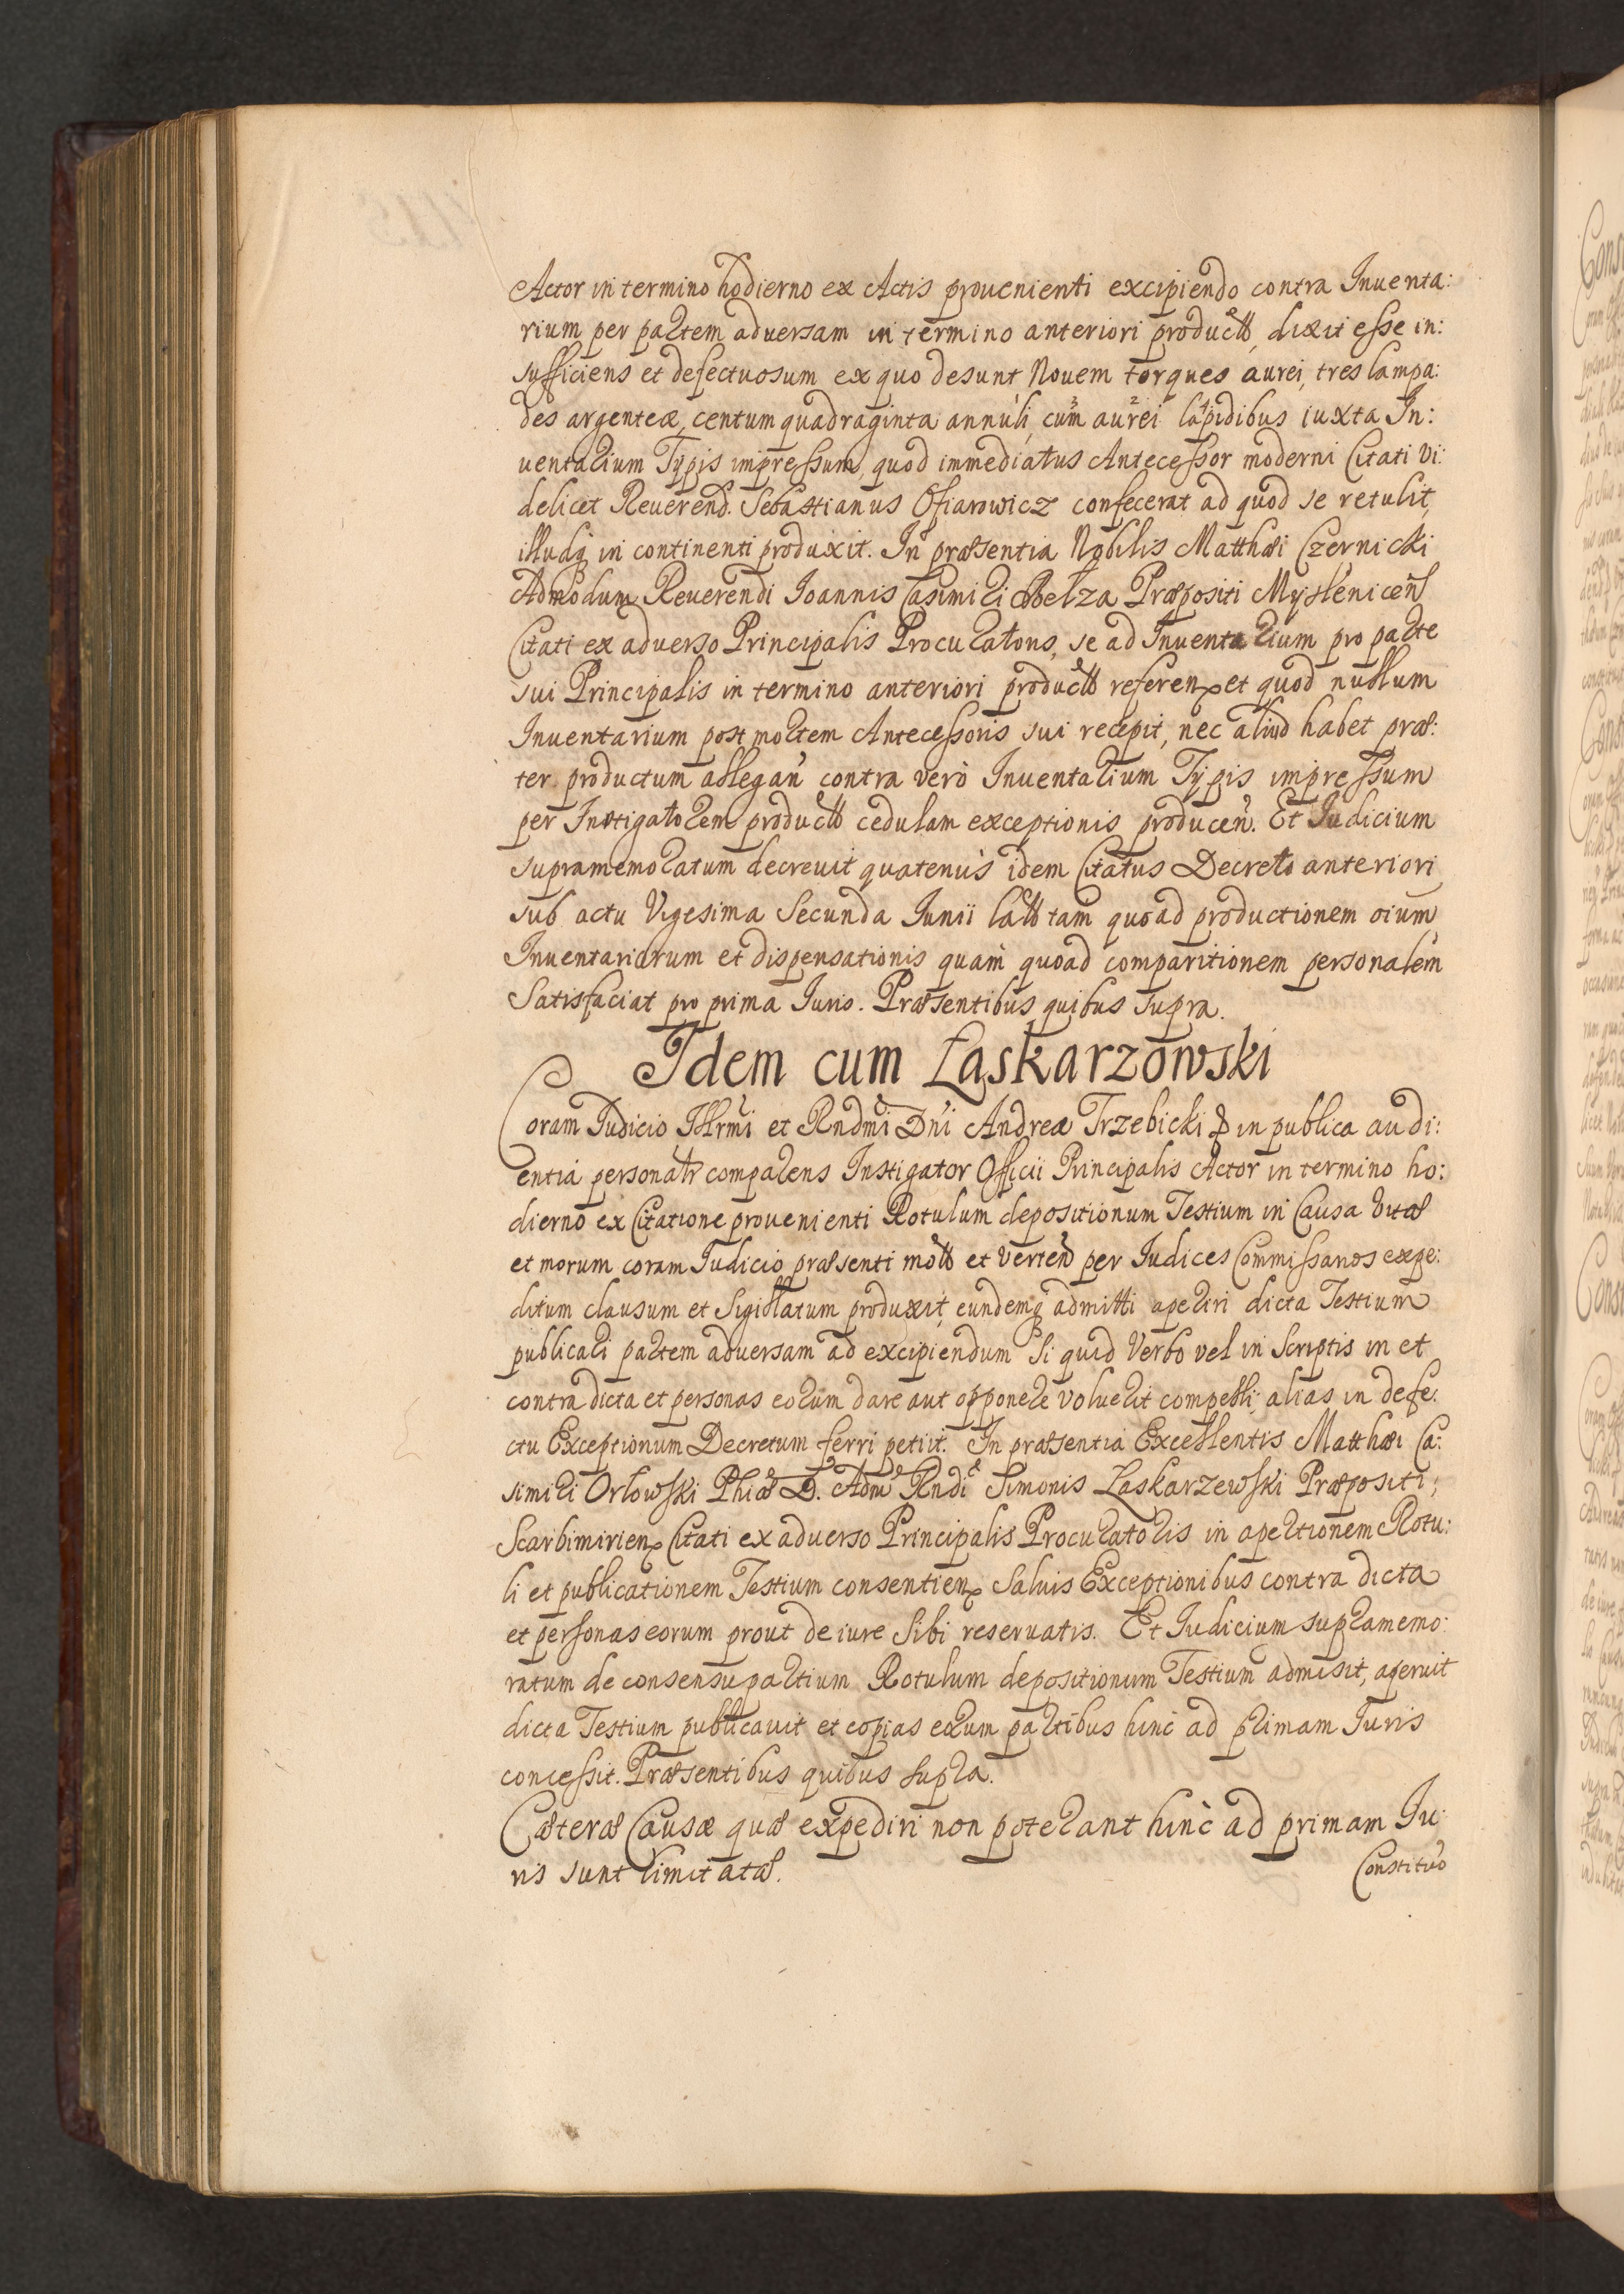 Actor in termino hodierno ex Actis prouenienti excipiendo contra Inuenta:
rium per partem aduersam in termino anteriori product, dixit esse in:
sufficiens et defectuosum ex quo desunt Nouem torques aurei, tres lampa:
des argenteæ, centum quadraginta annuli, cum aurei lapidibus iuxta In:
uentarium Typis impressum, quod immediatus Antecessor moderni Citati Vi:
delicet Reuerend. Sebastianus Ofiarowicz confecerat ad quod se retulit,
illudq in continenti produxit. In præsentia Nobilis Matthæi Czernicki
Admodum Reuerendi Ioannis Casimiri Belza Præpositi Myslenicen
Citati ex aduerso Principalis Procuratoris, se ad Inuentarium pro parte
sui Principalis in termino anteriori product referen et quod nullum
Inuentarium post mortem Antecessoris sui recepit, nec aliud habet præ:
ter productum allegan contra verò Inuentarium Typis impressum
per Instigatorem product cedulam exceptionis producen. Et Iudicium
supramemoratum decreuit quatenus idem Citatus Decreto anteriori
sub actu Vigesima Secunda Iunii lat tam quoad productionem oium
Inuentariorum et dispensationis quam quoad comparitionem personalem
Satisfaciat pro prima Iuris. Præsentibus quibus supra.
Idem cum Łaskarzowski
Coram Iudicio Illrmi et Rndmi Dni Andreæ Trzebicki & in publica audi:
entia personalr comparens Instigator Officii Principalis Actor in termino ho:
dierno ex Citatione prouenienti Rotulum depositionum Testium in Causa Vitæ
et morum coram Iudicio præsenti mot et verten per Iudices Commissarios expe:
ditum clausum et Sigillatum produxit, eundemq admitti aperiri dicta Testium
publicari partem aduersam ad excipiendum Si quid Verbo vel in Scriptis in et
contra dicta et personas eorum dare aut opponere voluerit compelli, alias in defe:
ctu Exceptionum Decretum ferri petiit. In præsentia Excellentis Matthæi Ca:
simiri Orłowski Phiæ D. Adm Rndi Simonis Laskarzewski Præpositi;
Scarbimirien Citati ex aduerso Principalis Procuratoris in apertionem Rotu:
li et publicationem Testium consentien Saluis Exceptionibus contra dicta
et personas eorum prout de iure Sibi reseruatis. Et Iudicium supramemo:
ratum de consensu partium Rotulum depositionum Testium admisit, aperuit
dicta Testium publicauit et copias eorum partibus hinc ad primam Iuris
concessit. Præsentibus quibus supra.
Cæteræ Causæ quæ expediri non poterant hinc ad primam Iu:
ris sunt limitatæ.
Constituo